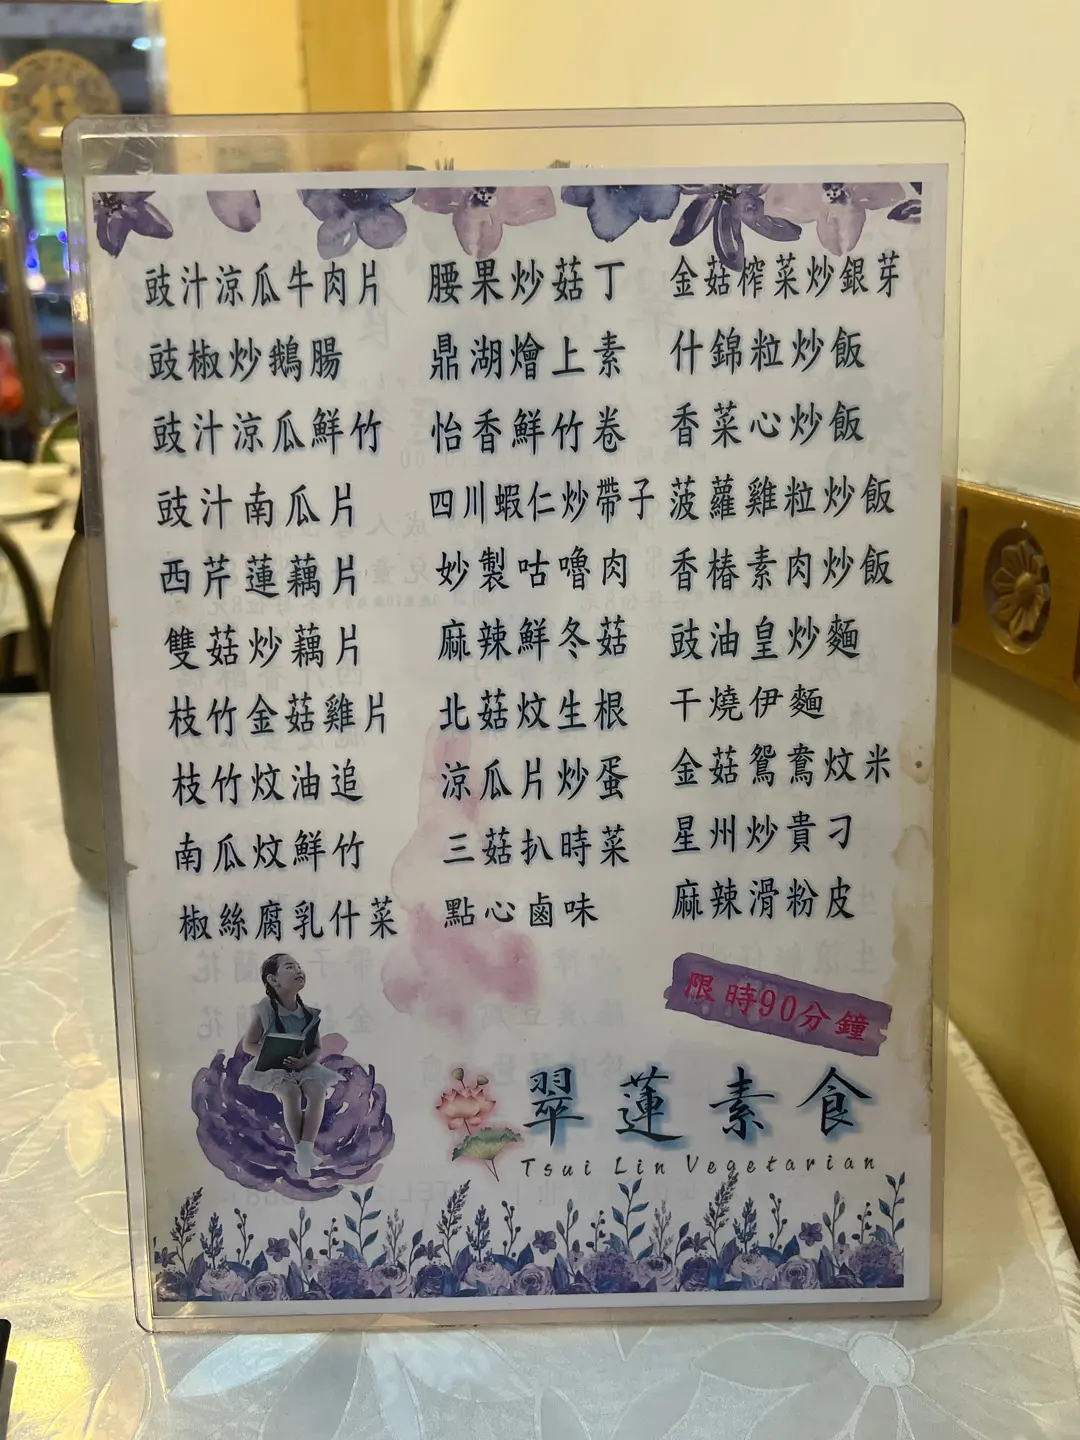 豉汁涼瓜牛肉片
豉椒炒鵝腸
豉汁涼瓜鮮竹
豉汁南瓜片
西芹蓮藕片
雙菇炒藕片
枝竹金菇雞片
枝竹炆油追
南瓜炆鮮竹
椒絲腐乳什菜
腰果炒菇丁
鼎湖燴上素
怡香鮮竹卷
四川蝦仁炒帶子
妙製咕嚕肉
麻辣鮮冬菇
北菇炆生根
涼瓜片炒蛋
三菇扒時菜
點心鹵味
金菇榨菜炒銀芽
什錦粒炒飯
香菜心炒飯
菠蘿雞粒炒飯
香椿素肉炒飯
豉油皇炒麵
干燒伊麵
金菇鴛鴦炆米
星州炒貴刁
麻辣滑粉皮
限時90分鐘
翠蓮素食
Tsui Lin Vegetarian